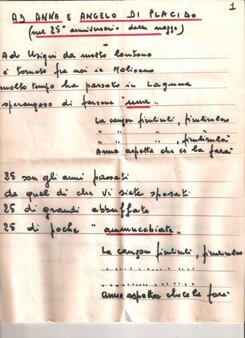 1
AD ANNA E ANGELO DI PLACIDO
(nel 25° anniversario delle nozze)
Ad Usigni da molto lontano
è tornato fra noi il Molisano
molto tempo ha passato in Laguna
speranzoso di farsene "una".
La canzon finticuli, finticulero
" " " , finticulà"
Anna aspetta che ce la farà"
25 son gli anni passati
da quel dì che Vi siete sposati
25 di grandi abbuffate
25 di poche " ammucchiate".
La canzon finticuli, finticulero
.. .. .. .. .. .. ..
.. .. .. .. .. ..
Anna aspetta che ce la farà"